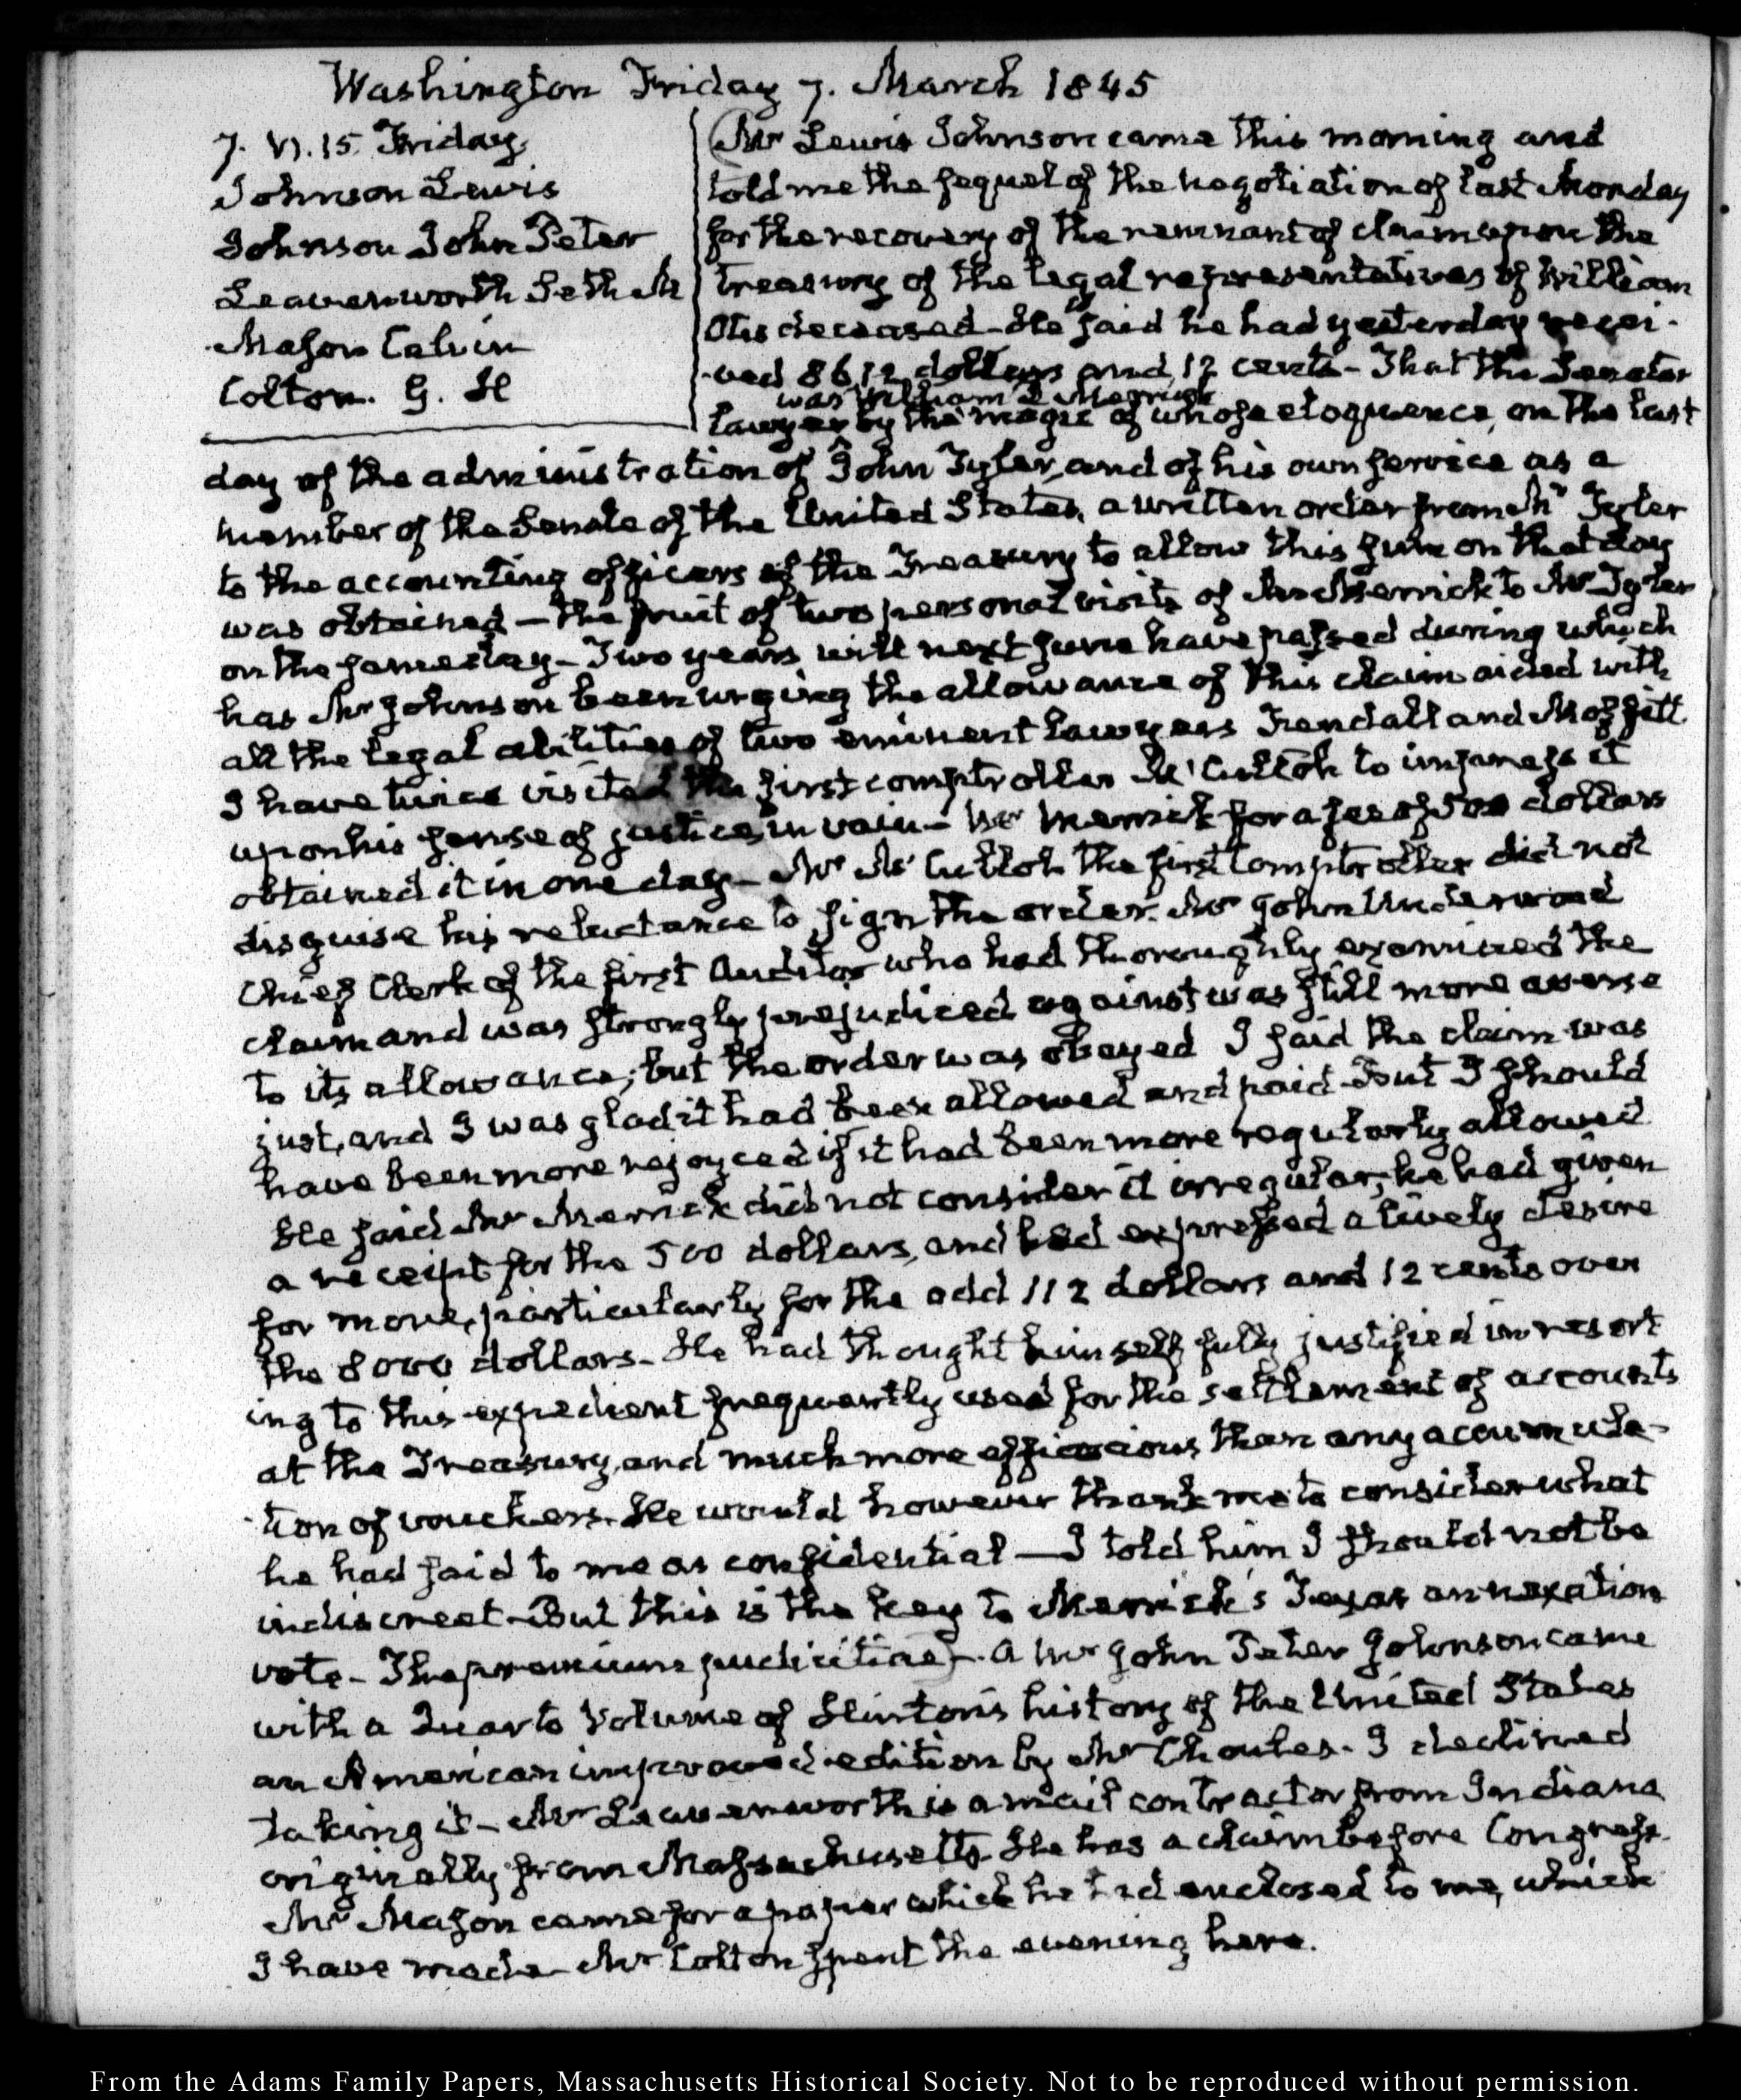 Washington Friday 7. March 1845
7. VI. 15. Friday.
Johnson Lewis
Johnson John Peter
Leavenworth Seth M
Mason Calvin
Colton. G. H
Mr Lewis Johnson came this morning and
told me the sequel of the negotiation of last Monday
for the recovery of the remnant of claim upon the
Treasury of the legal representatives of William
Otis deceased. He said he had yesterday recei-
ved 8612 dollars and 12 cents- That the Senator
was William D Merrick
lawyer by the magic of whose eloquence, on the last
day of the administration of John Tyler, and of his own service as a
member of the Senate of the United States, a written order from Mr Tyler
to the accounting officers of the Treasury to allow this sum on that day
was obtained — the fruit of two personal visits of Mr Merrick to Mr Tyler
on the same day- Two years will next June have passed during which
has Mr Johnson been urging the allowance of this claim aided with
all the legal abilities of two eminent lawyers Fendall and
I have twice visited the first comptroller McCulloh to impress it
upon his sense of justice, in vain- Mr Merrick for a fee of 500 dollars
obtained it in one day- Mr McCulloh the first Comptroller did not
disguise his reluctance to sign the order. Mr John Underwood
Chief Clerk of the first Auditor who had thoroughly examined the
claim and was strongly prejudiced against was still more averse
to its allowance; but the order was obeyed I said the claim was
just, and I was glad it had been allowed and paid- but I should
have been more rejoyced if it had been more regularly allowed
He said Mr Merrick did not consider it irregular; he had given
a receipt for the 500 dollars, and had expressed a lively desire
for more, particularly for the odd 112 dollars and 12 cents over
the 8000 dollars- He had thought himself fully justified in resort
ing to this expedient frequently used for the settlement of accounts
at the Treasury, and much more efficacious than any accumula-
tion of vouchers. He would however thank me to consider what
he had said to me as confidential — I told him I should not be
indiscreet- But this is the key to Merrick's Texas annexation
vote- The premium pudicitiae)- A Mr John Peter Johnson came
with a Quarto Volume of Hinton's history of the United States
an American improved edition by Mr Choules- I declined
taking it- Mr Leavenworth is a mail contractor from Indiana
originally from Massachusetts. He has a claim before Congress.
Mr Mason came for a paper which he had enclosed to me, which
I have made- Mr Colton spent the evening here.
From the Adams Family Papers, Massachusetts Historical Society. Not to be reproduced without permission.